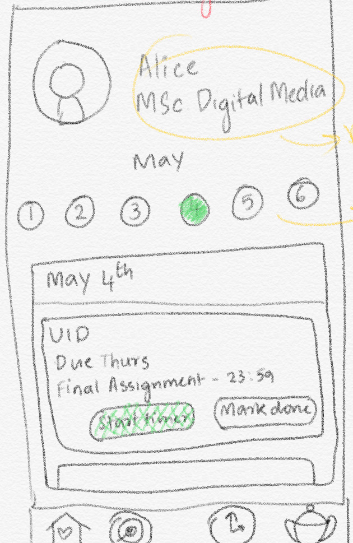 Alice
MSc Digital Media
May
1 2 3 4 5 6
May 4th
UID
Due Thurs
Final Assignment - 23:59
Start timer Mark done